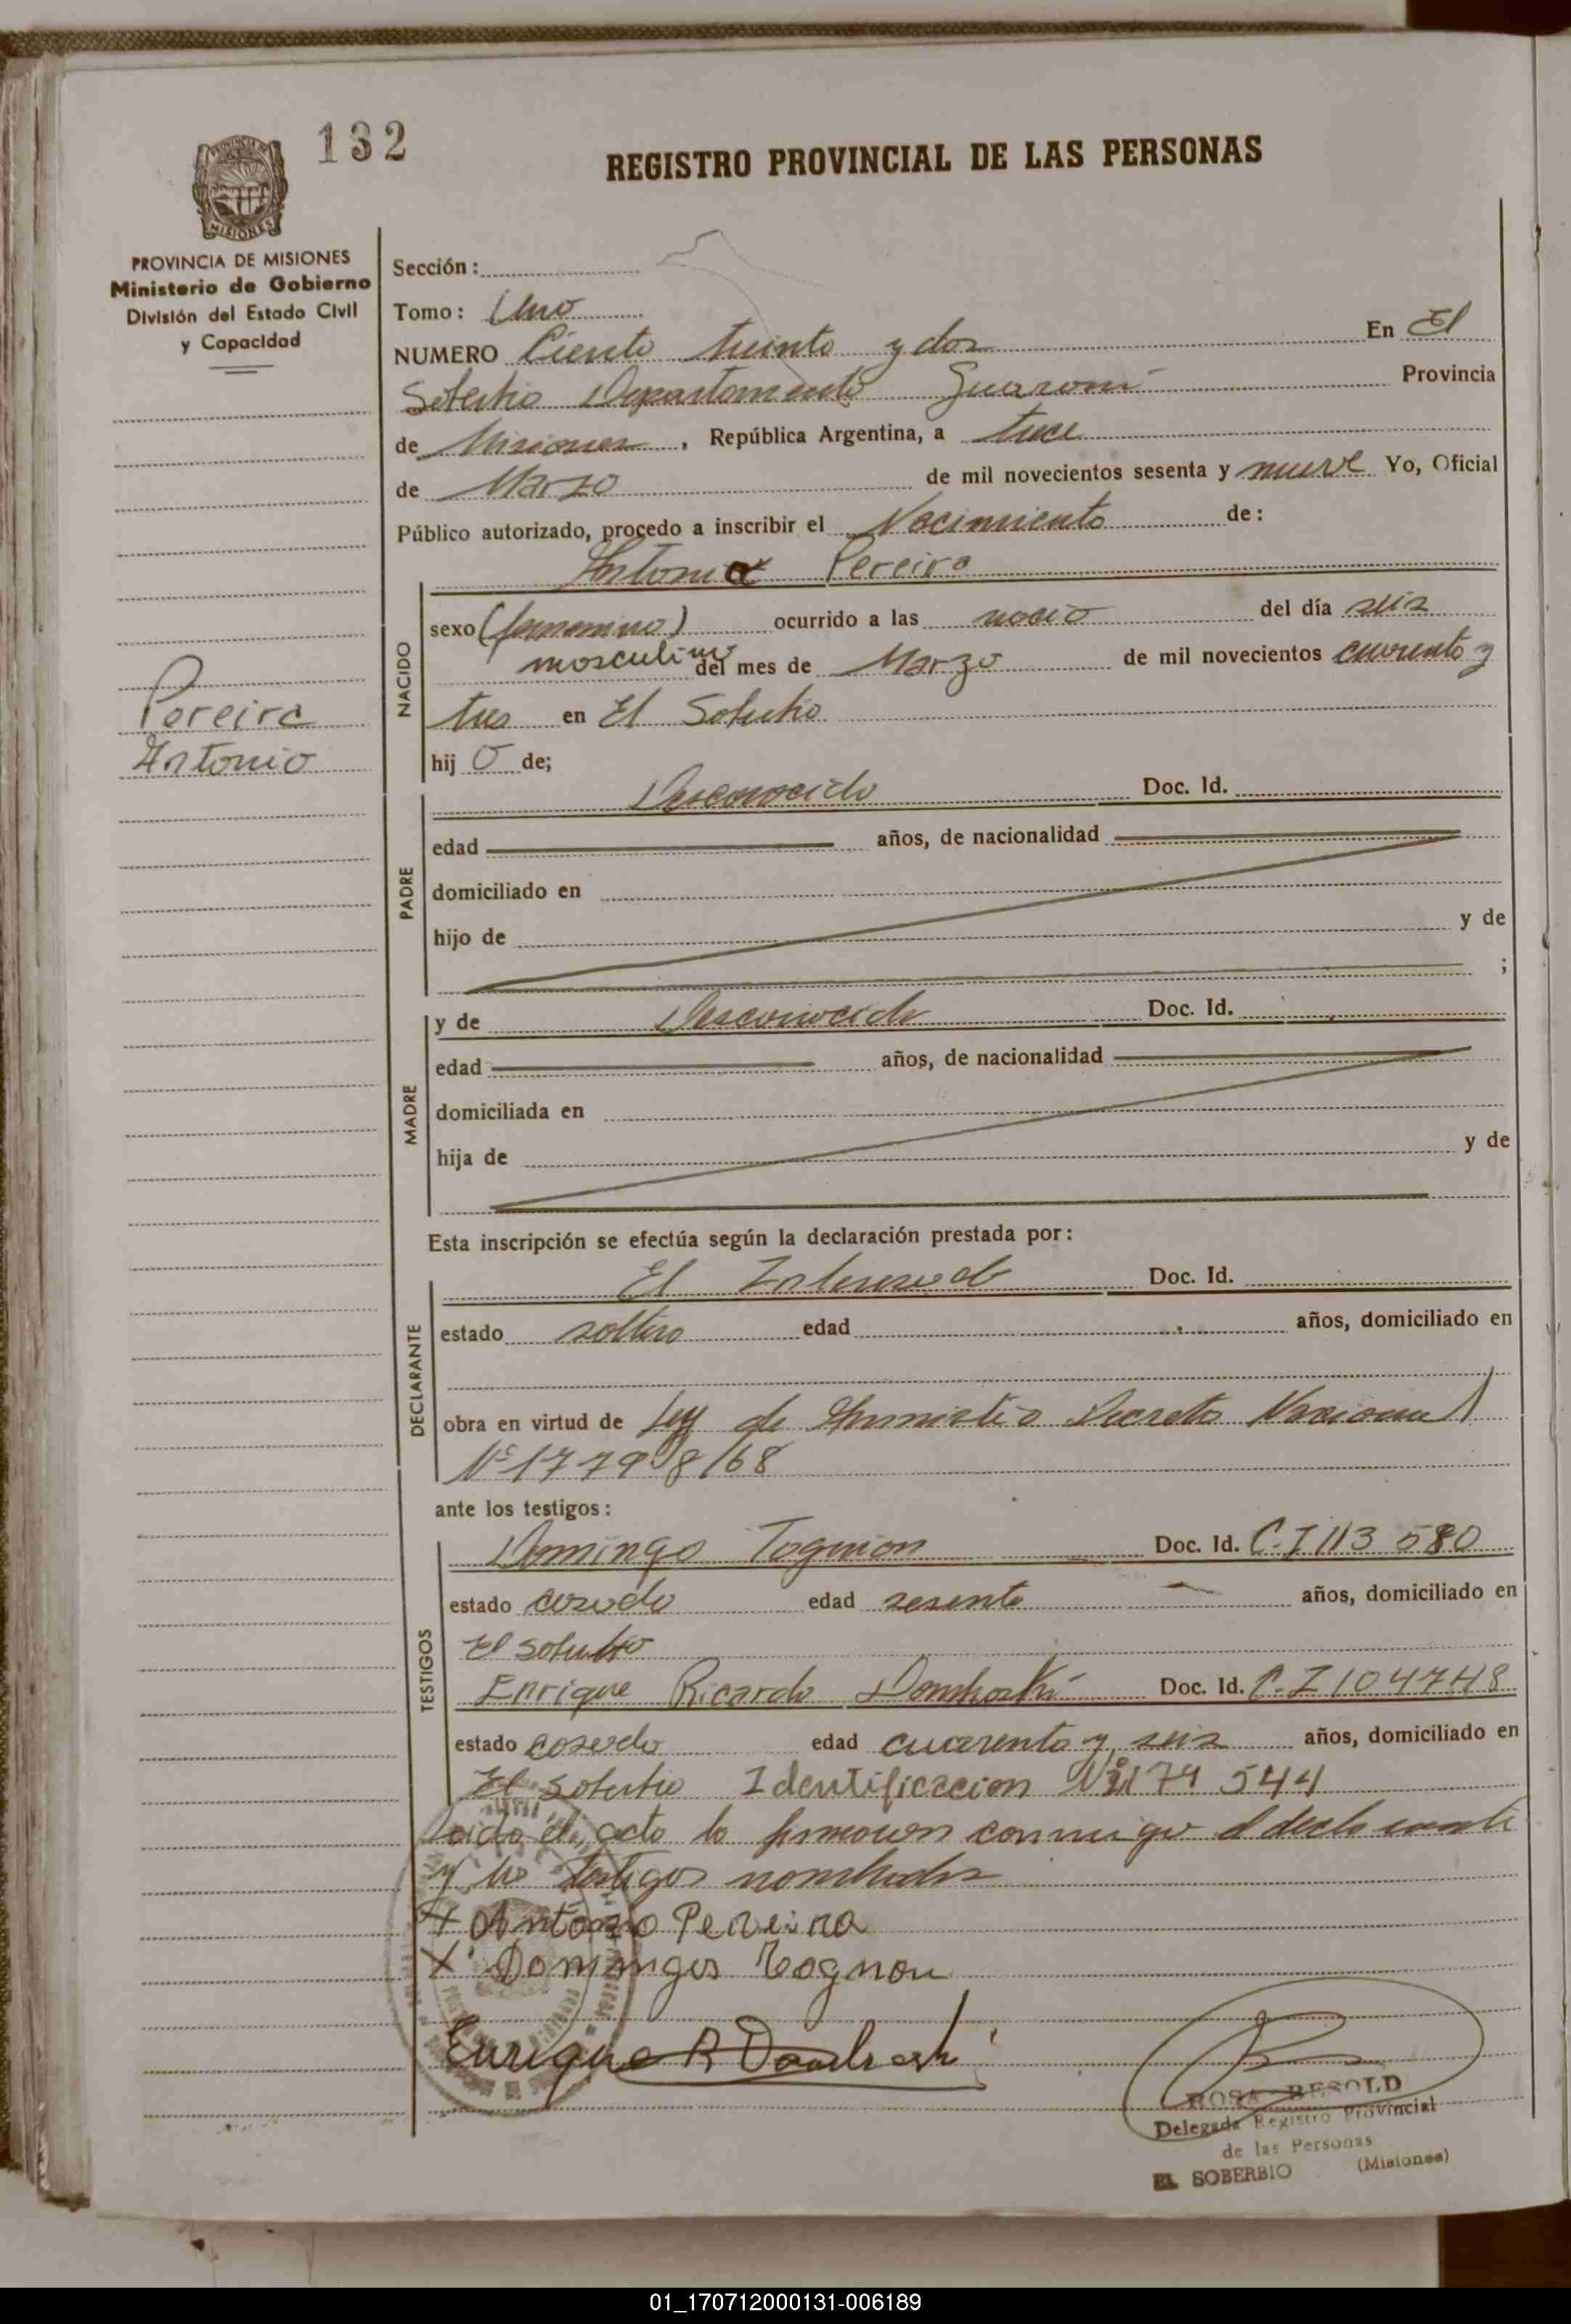 132
REGISTRO PROVINCIAL DE LAS PERSONAS
PROVINCIA DE MISIONES
MISIONES
Ministerio de Gobierno
División del Estado Civil
y Capacidad
Sección:
Tomo: Uno
NUMERO Ciento treinta y dos En El
Soberbio Departamento Guaraní Provincia
de Misiones, República Argentina, a trece
de Marzo de mil novecientos sesenta y nueve Yo, Oficial
Público autorizado, procedo a inscribir el Nacimiento de:
Pereira
Antonio
NACIDO
Antonio Pereira
sexo (femenino) ocurrido a las del día seis
masculino del mes de Marzo de mil novecientos cuarenta y
tres en El Soberbio
hij o de;
PADRE
Desconocido Doc. Id.
edad años, de nacionalidad
domiciliado en
hijo de y de
;
MADRE
y de Desconocida Doc. Id.
edad años, de nacionalidad
domiciliada en
hija de y de
Esta inscripción se efectúa según la declaración prestada por:
DECLARANTE
El Interesado Doc. Id.
estado soltero edad años, domiciliado en
obra en virtud de Ley de Amnistia Decreto Nacional
Nº 17798/68
ante los testigos:
TESTIGOS
Domingo Tognon Doc. Id. C.I 113 580
estado casado edad sesenta años, domiciliado en
El Soberbio
Enrique Ricardo Doc. Id. C.I 104748
estado casado edad cuarenta y seis años, domiciliado en
El Soberbio Identificacion Nº 179 544
Leido el acta la firmaron conmigo el declarante
y los testigos nombrados
X Antonio Pereira
X Domingos Tognon
Enrique R
ROSA BESOLD
Delegada Registro Provincial
de las Personas
EL SOBERBIO (Misiones)
01_170712000131-006189